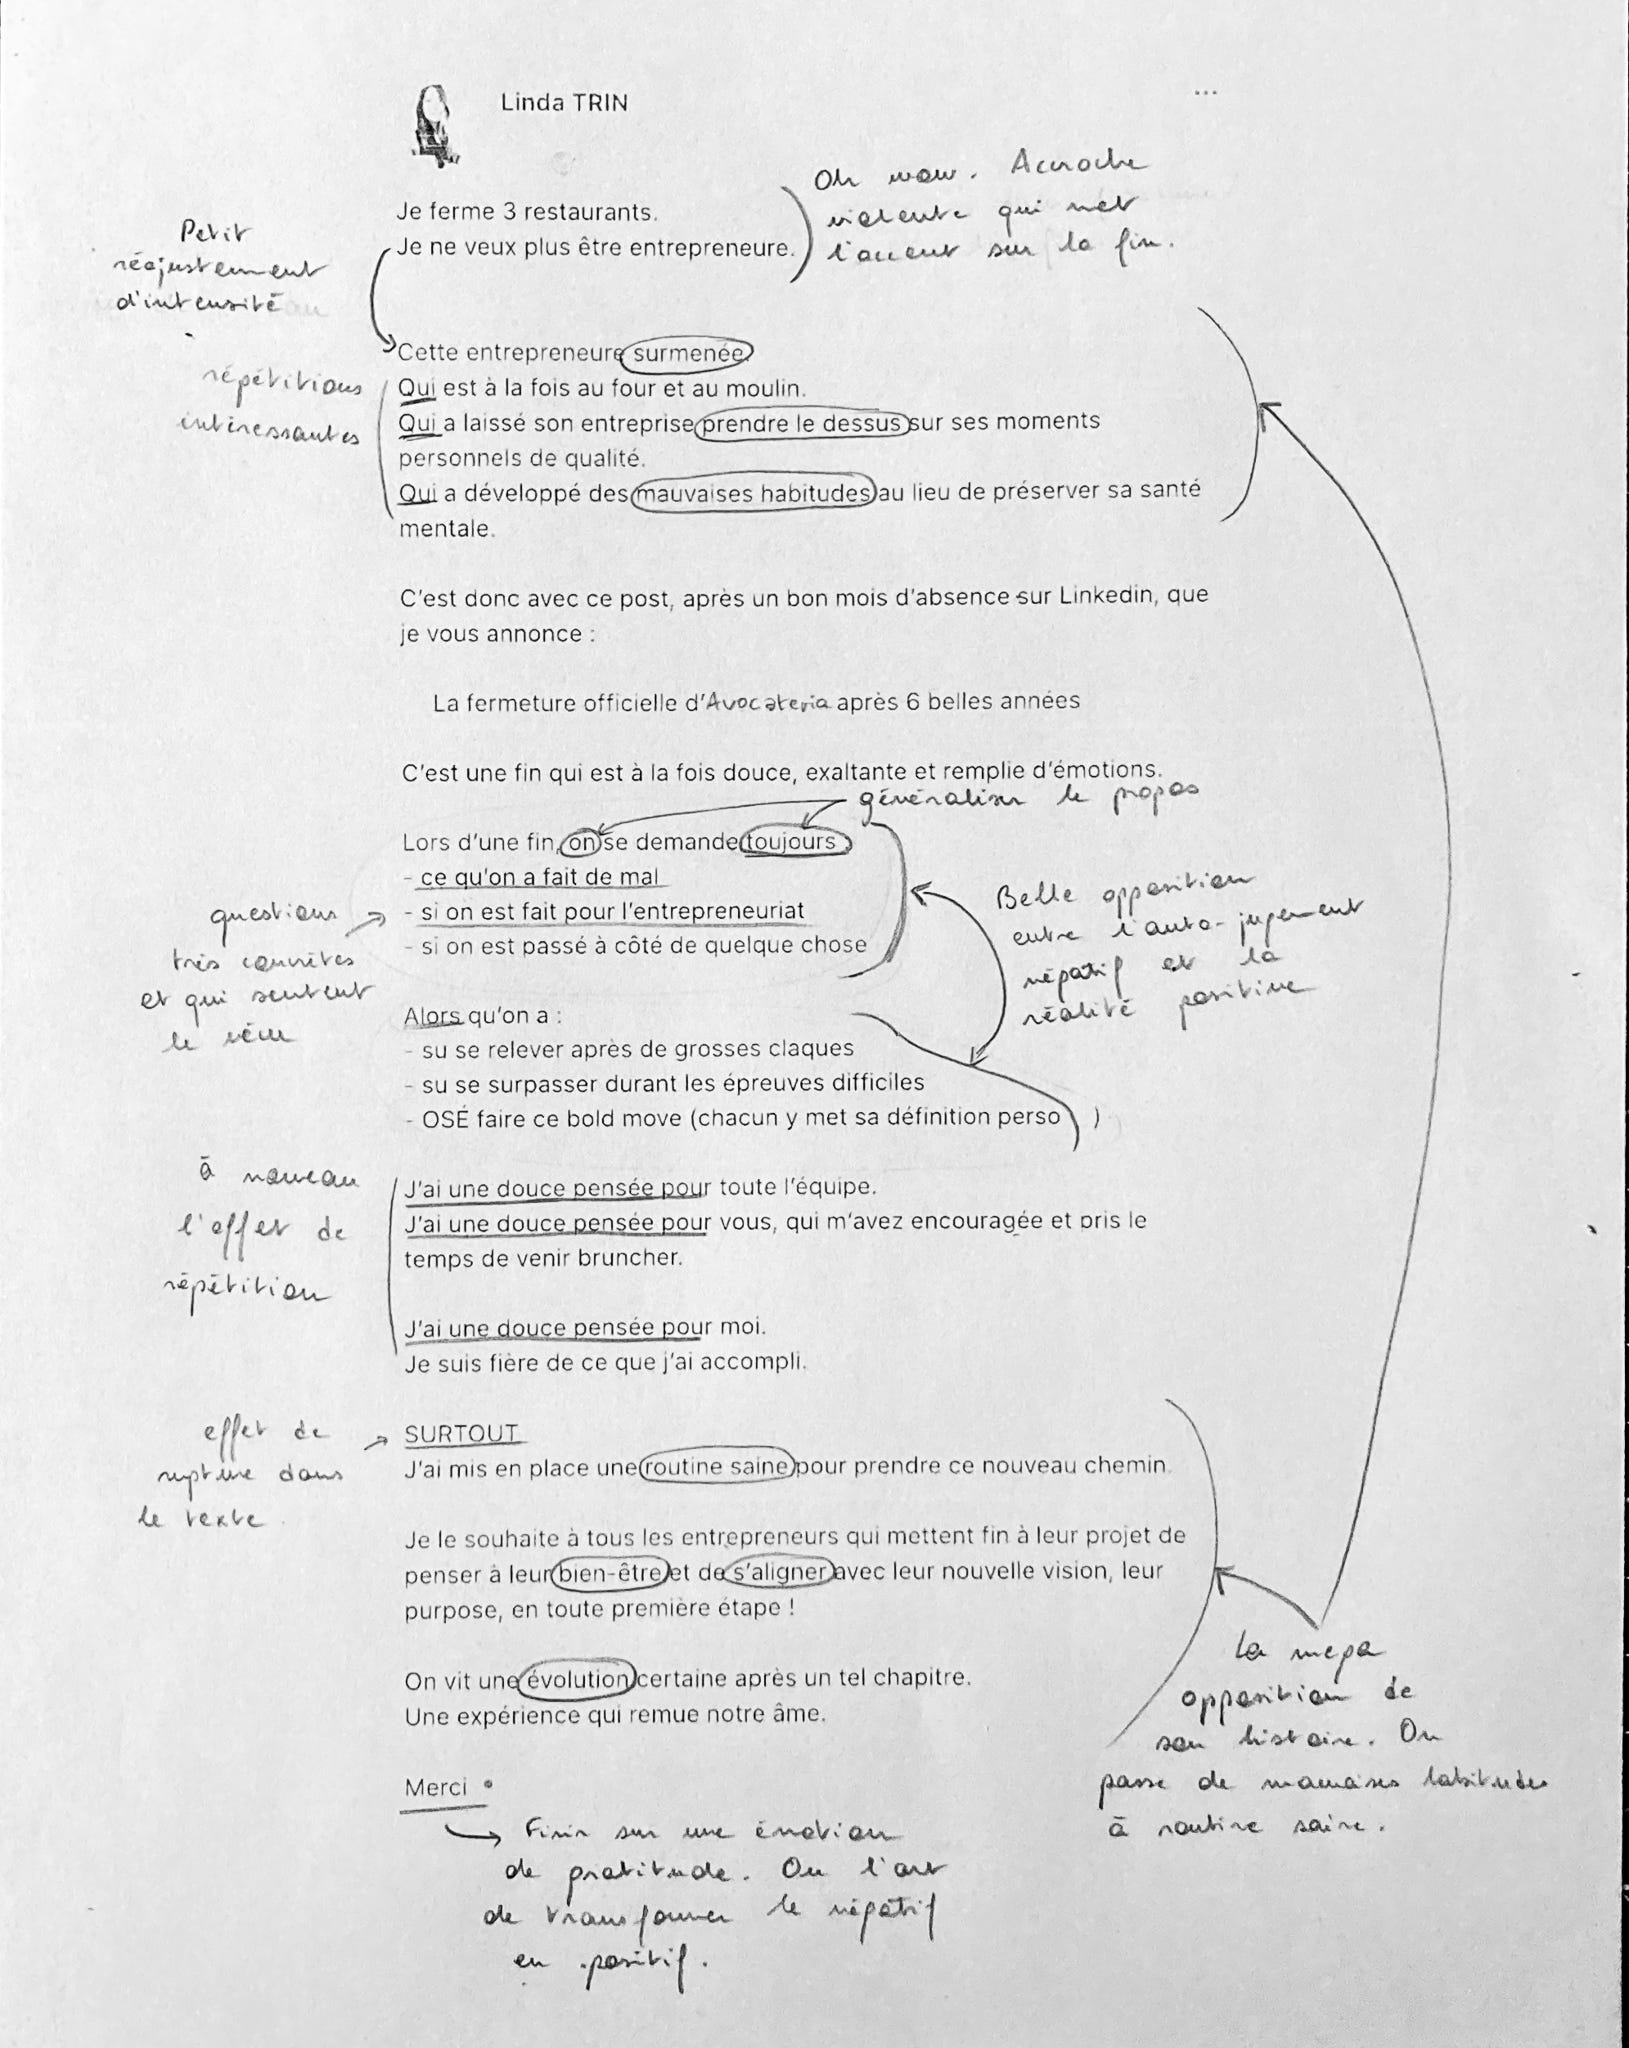 Linda TRIN
...
Oh wow. Accroche
violente qui met
l'accent sur la fin.
Je ferme 3 restaurants.
Je ne veux plus être entrepreneure.
Petit
réajustement
d'intensité
Cette entrepreneure surmenée.
Qui est à la fois au four et au moulin.
Qui a laissé son entreprise prendre le dessus sur ses moments
personnels de qualité.
Qui a développé des mauvaises habitudes au lieu de préserver sa santé
mentale.
répétitions
intéressantes
C'est donc avec ce post, après un bon mois d'absence sur Linkedin, que
je vous annonce :
La fermeture officielle d'Avocateria après 6 belles années
C'est une fin qui est à la fois douce, exaltante et remplie d'émotions.
généraliser le propos
Lors d'une fin, on se demande toujours :
- ce qu'on a fait de mal
- si on est fait pour l'entrepreneuriat
- si on est passé à côté de quelque chose
questions
très concrètes
et qui sentent
le vécu
Belle opposition
entre l'auto-jugement
négatif et la
réalité positive
Alors qu'on a :
- su se relever après de grosses claques
- su se surpasser durant les épreuves difficiles
- OSÉ faire ce bold move (chacun y met sa définition perso )
à nouveau
l'effet de
répétition
J'ai une douce pensée pour toute l'équipe.
J'ai une douce pensée pour vous, qui m'avez encouragée et pris le
temps de venir bruncher.
J'ai une douce pensée pour moi.
Je suis fière de ce que j'ai accompli.
effet de
rupture dans
le texte.
SURTOUT
J'ai mis en place une routine saine pour prendre ce nouveau chemin.
Je le souhaite à tous les entrepreneurs qui mettent fin à leur projet de
penser à leur bien-être et de s'aligner avec leur nouvelle vision, leur
purpose, en toute première étape !
On vit une évolution certaine après un tel chapitre.
Une expérience qui remue notre âme.
La mega
opposition de
son histoire. On
passe de mauvaises habitudes
à routine saine.
Merci
Finir sur une émotion
de gratitude. Ou l'art
de transformer le négatif
en positif.